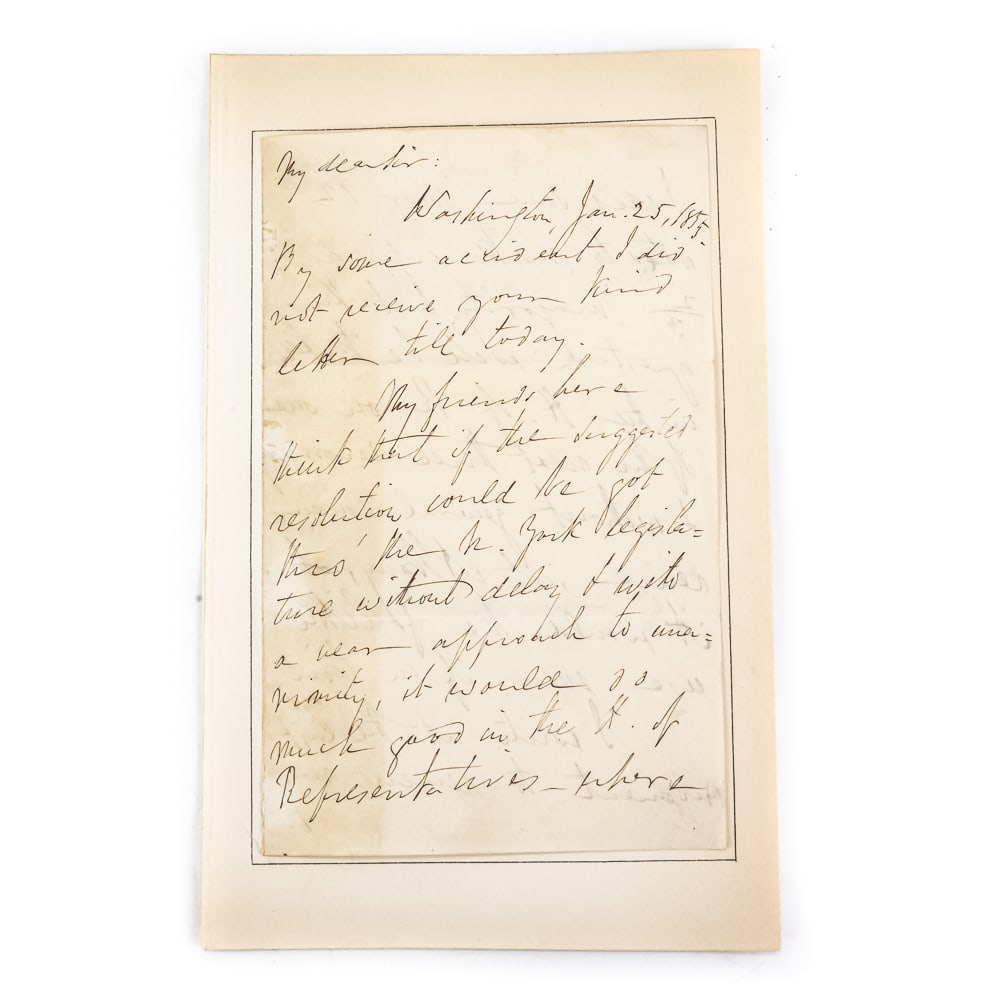 My dear Sir:
Washington, Jan. 25, 1855.
By some accident I did
not receive your kind
letter till today.
My friends here
think that if the suggested
resolution could be got
thro' the N. York legisla=
ture without delay & with
a near approach to una=
nimity, it would do
much good in the H. of
Representatives – where